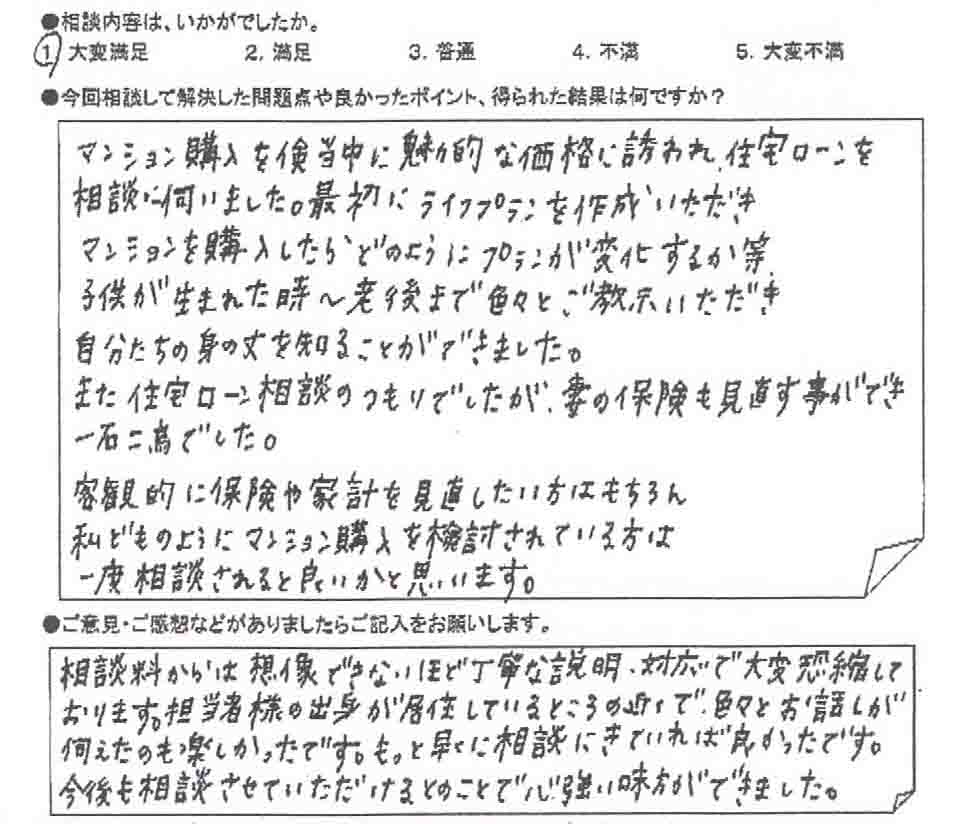 ●相談内容は、いかがでしたか。
1 大変満足 2. 満足 3. 普通 4. 不満 5. 大変不満
●今回相談して解決した問題点や良かったポイント、得られた結果は何ですか？
マンション購入を倹当中に魅力的な価格に誘われ、住宅ローンを
相談に伺いました。最初にライフプランを作成いただき
マンションを購入したらどのようにプランが変化するか等、
子供が生まれた時～老後まで色々とご教示いただき
自分たちの身の丈を知ることができました。
また住宅ローン相談のつもりでしたが、妻の保険も見直す事ができ
一石二鳥でした。
客観的に保険や家計を見直したい方はもちろん
私どものようにマンション購入を検討されている方は
一度相談されると良いかと思います。
●ご意見・ご感想などがありましたらご記入をお願いします。
相談料からは想像できないほど丁寧な説明、対応で大変恐縮して
おります。担当者様の出身が居住しているところの近くで、色々とお話しが
伺えたのも楽しかったです。もっと早くに相談にきていれば良かったです。
今後も相談させていただけるとのことで心強い味方ができました。